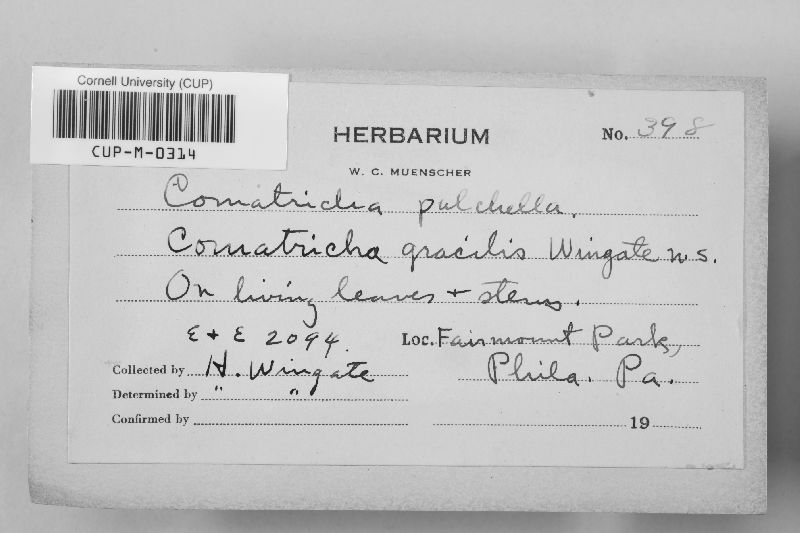 Cornell University (CUP)
CUP-M-0314
HERBARIUM
No. 398
W. C. MUENSCHER
Comatricha pulchella.
Comatricha gracilis Wingate n s.
On living leaves + stems.
E + E 2094.
Loc. Fairmount Park,
Collected by H. Wingate
Phila. Pa.
Determined by " "
Confirmed by
19